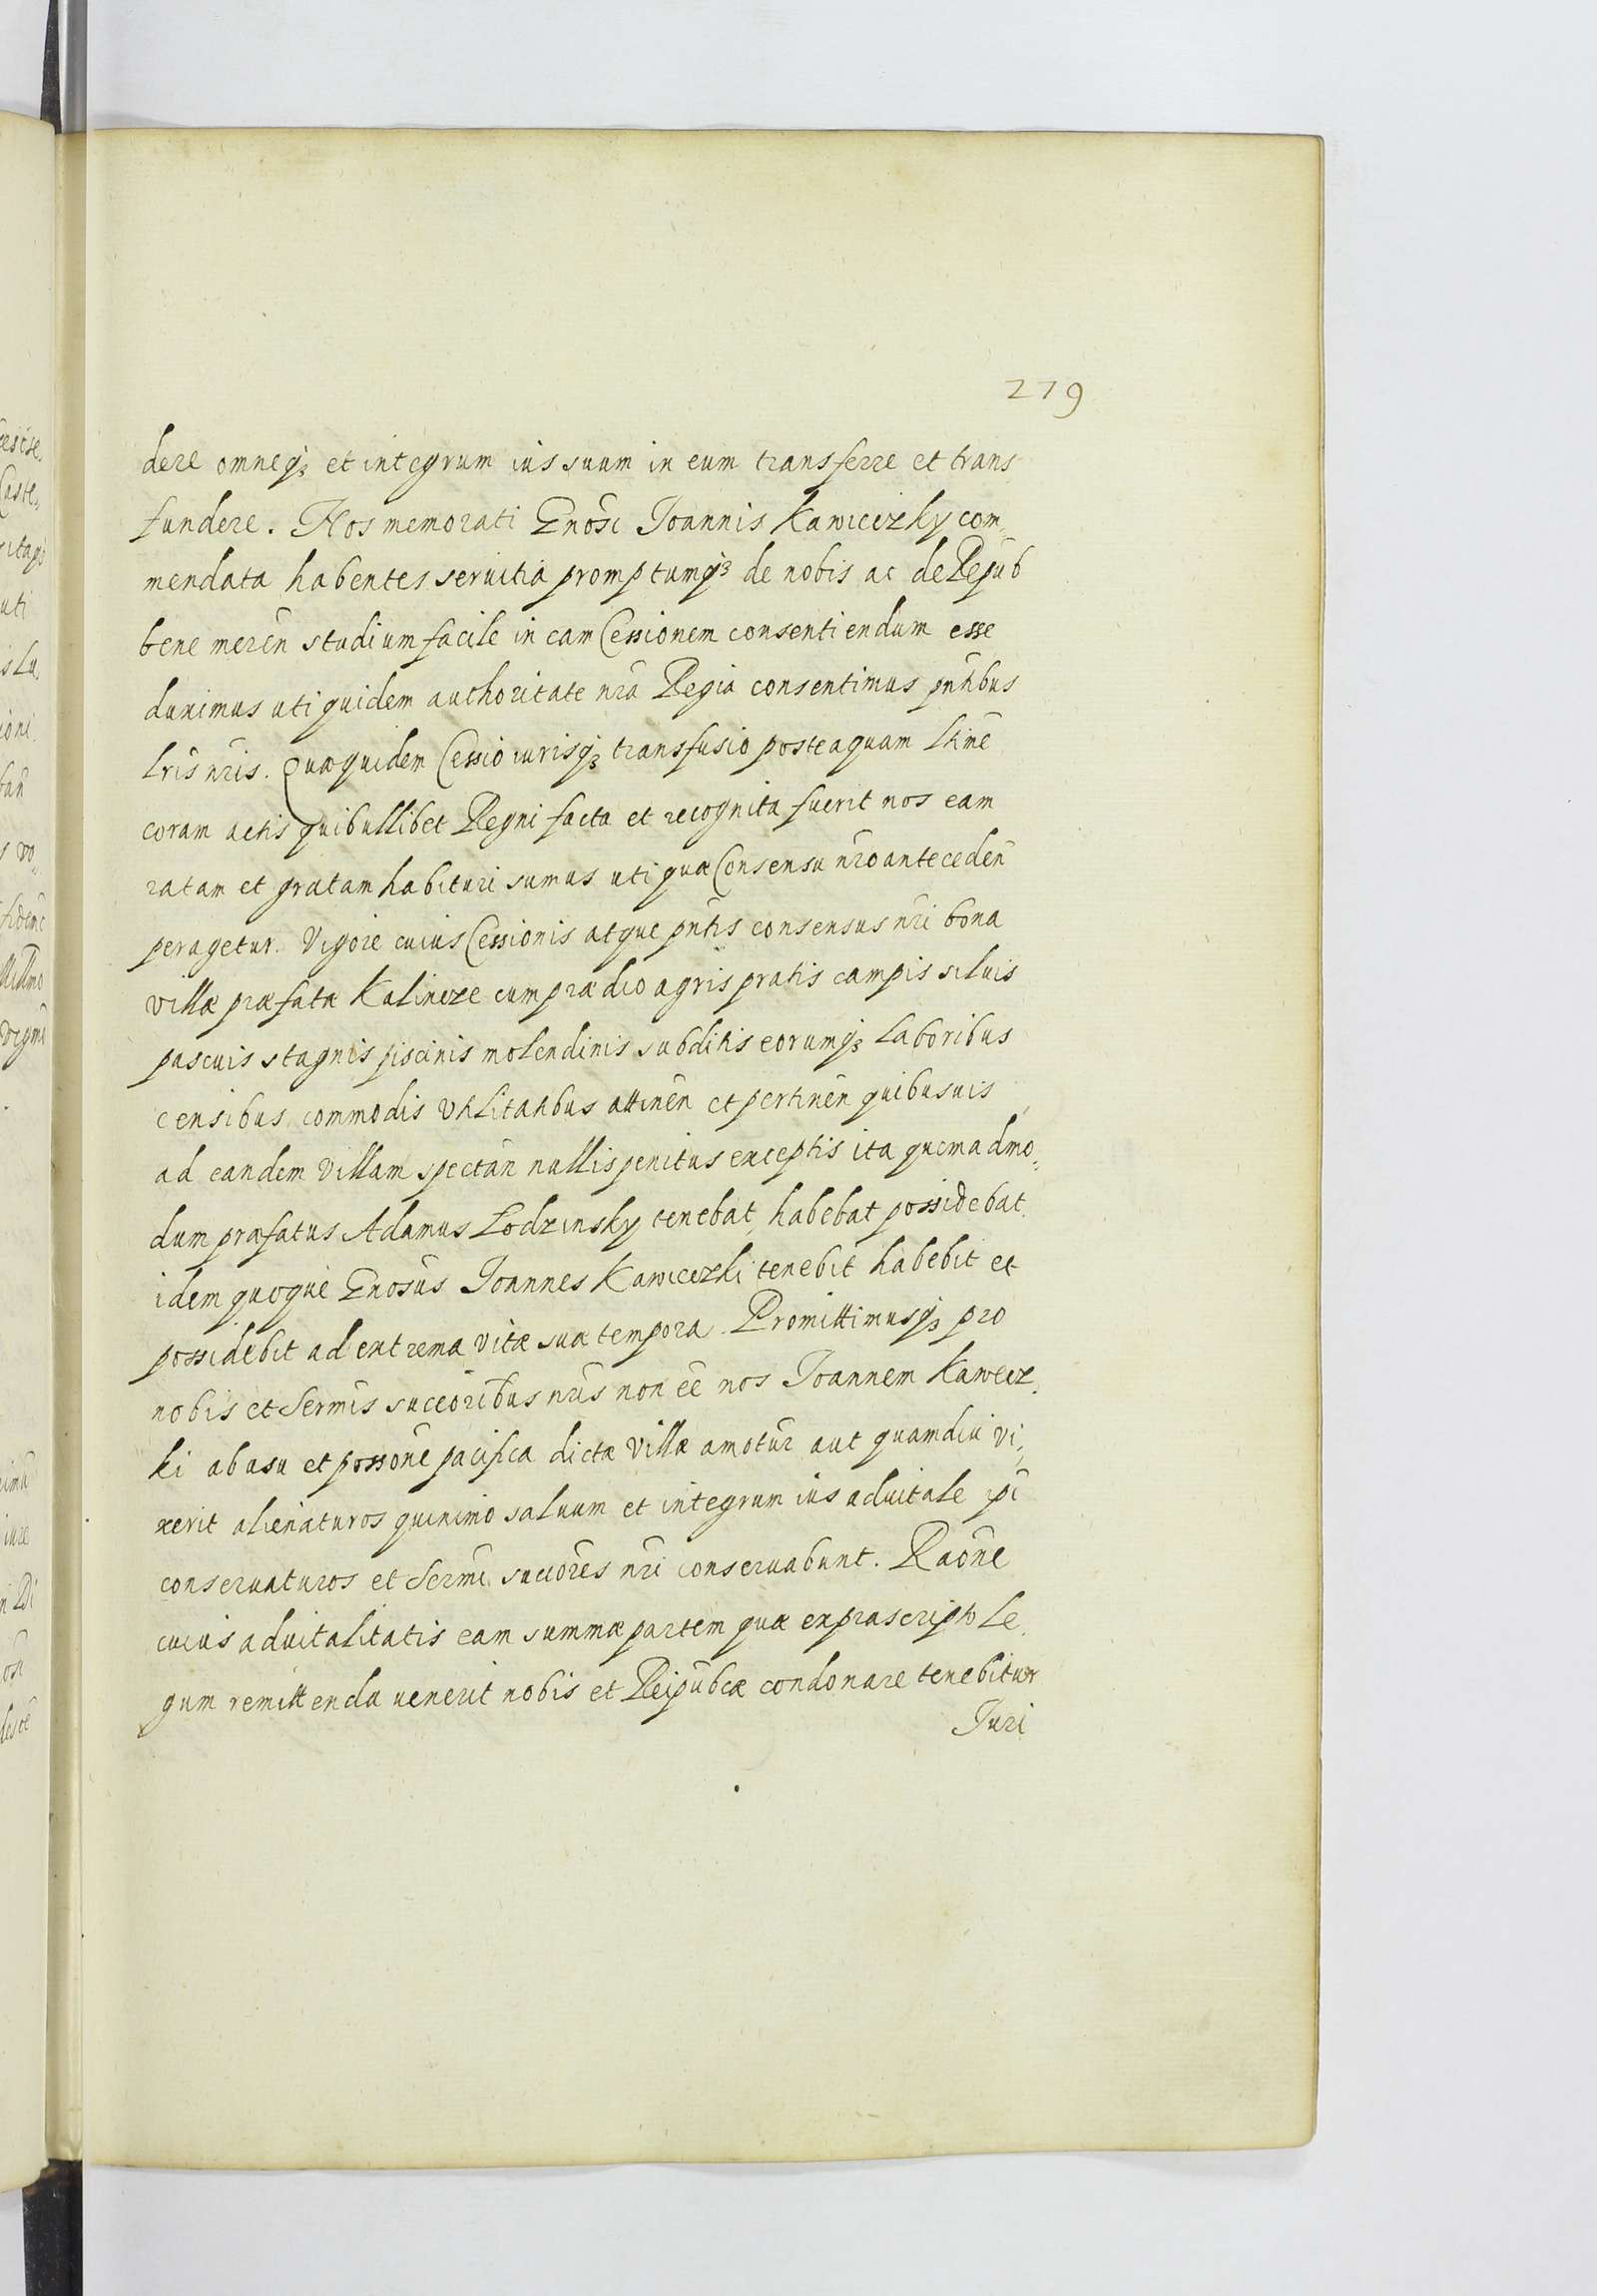 279
dere omneq₃ et integrum ius suum in eum transferre et trans
fundere. Nos memorati Gnosi Joannis Kawieczky com„
mendata habentes seruitia promptumq₃ de nobis ac de Repub
bene meren̄ studium facile in eam Cessionem consentiendum esse
duximus uti quidem authoritate nr̄a Regia consentimus pn̄tibus
lr̄is nr̄is. Quæ quidem Cessio iurisq₃ transfusio posteaquam ltīme
coram actis quibuslibet Regni facta et recognita fuerit nos eam
ratam et gratam habituri sumus uti quæ Consensu nr̄o anteceden̄
peragetur. Vigore cuius Cessionis atque pn̄tis consensus nr̄i bona
villæ præfatæ Kalincze cum prædio agris pratis campis siluis
pascuis stagnis piscinis molendinis subditis eorumq₃ laboribus
censibus commodis vtilitatibus attinen̄ et pertinen̄ quibusuis
ad eandem villam spectan̄ nullis penitus exceptis ita quemadmo„
dum præfatus Adamus Lodzinsky tenebat, habebat possidebat
idem quoque Gnosus Joannes Kawieczki tenebit habebit et
possidebit ad extrema vitæ suæ tempora. Promittimusq₃ pro
nobis et Sermis succōribus nr̄is non ēe nos Joannem Kawecz„
ki ab usu et possōne pacifica dictæ villæ amotur̄ aut quamdiu vi„
xerit alienaturos quinimo saluum et integrum ius aduitale ip̄i
conseruaturos et Sermi succōres nr̄i conseruabunt. Raōne
cuius aduitalitatis eam summæ partem quæ ex præscripto Le„
gum remittenda uenerit nobis et Reipubcæ condonare tenebitur
Juri